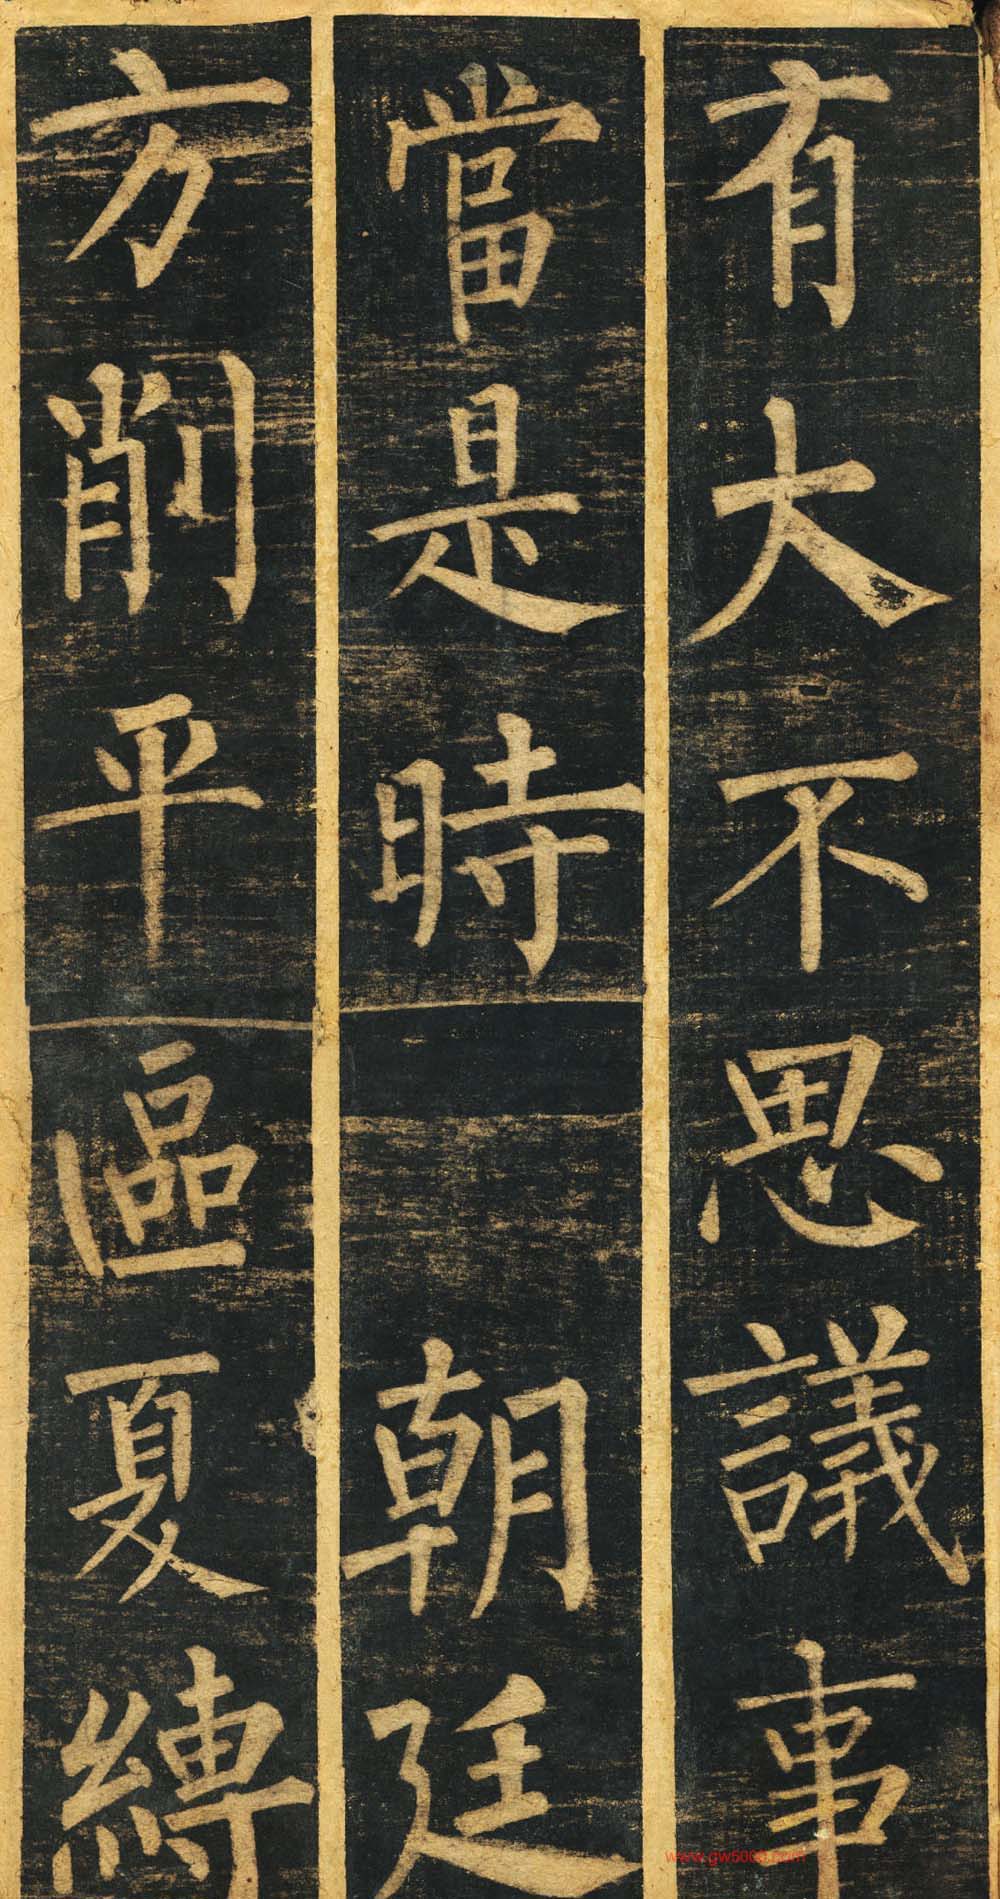 有大不思議事
當是時朝廷
方削平區夏縛
www.gw500d.com